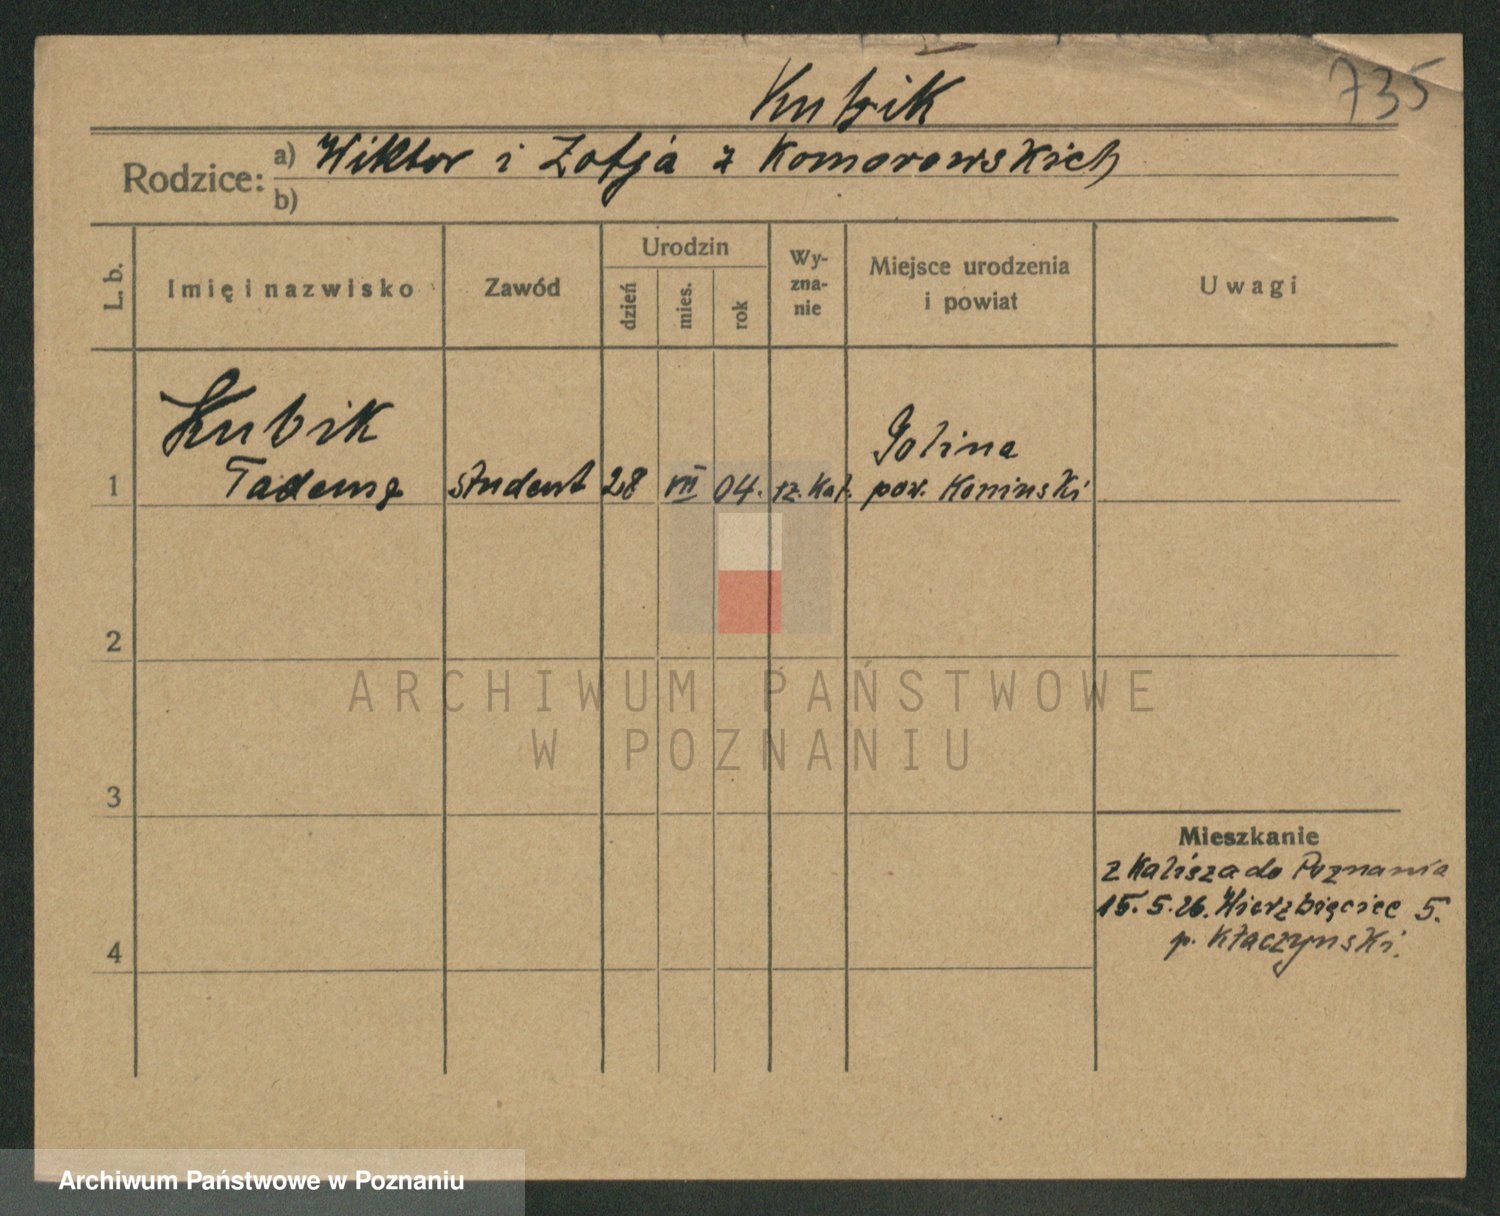 735
Kubik
Rodzice:
a) Wiktor i Zofja z Komorowskich
b)
L. b.
Imię i nazwisko
Zawód
Urodzin
dzień
mies.
rok
Wy-
zna-
nie
Miejsce urodzenia
i powiat
Uwagi
Kubik
Golina
1 Tadeusz student 28 VII 04. rz. kat. pow. Koninski
2
ARCHIWUM PAŃSTWOWE
W POZNANIU
3
Mieszkanie
z Kalisza do Poznania
15.5.26. Wierzbięcice 5.
p. Kłaczynski.
4
Archiwum Państwowe w Poznaniu